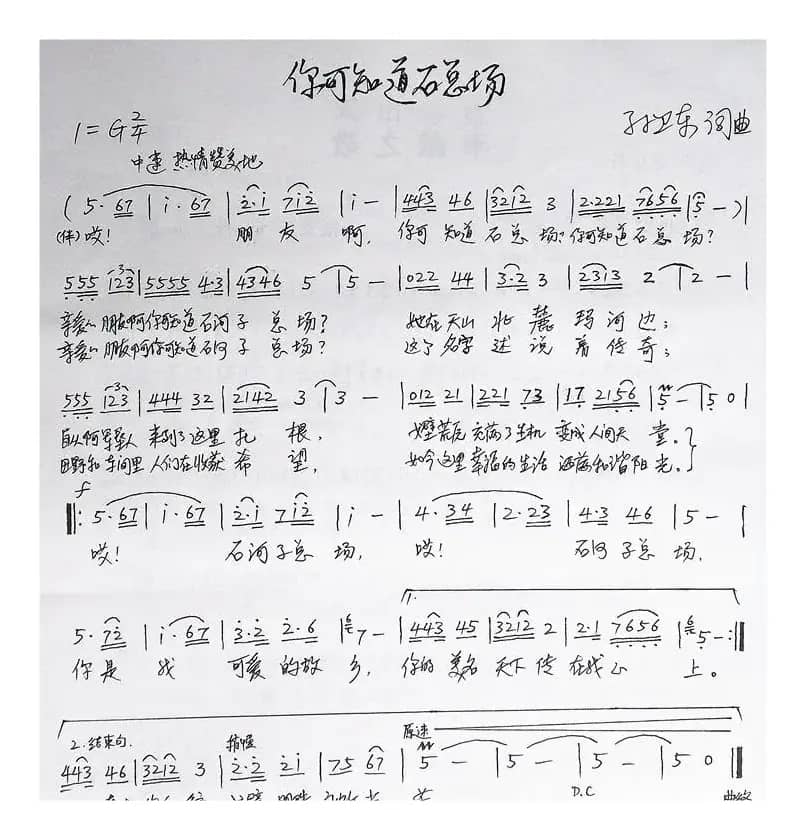 你可知道石总场
1=G 2/4
孙卫东 词曲
中速 热情赞美地
( 5· 67 | i· 67 | 2·i 7i2 | i - | 443 46 | 3212 3 | 2·221 7656 | 5 - ) |
(伴)哎! 朋友啊, 你可知道石总场?你可知道石总场?
555 123 | 5555 4·3 | 4346 5 | 5 - | 022 44 | 3·2 3 | 2313 2 | 2 - |
亲爱的朋友啊你可知道石河子总场? 她在天山北麓玛河边;
亲爱的朋友啊你可知道石河子总场? 这个名字述说着传奇;
555 123 | 444 32 | 2142 3 | 3 - | 012 21 | 221 73 | 17 2156 | 5 - | 5 0 |
自从啊军垦人来到了这里扎根, 戈壁荒原充满了生机变成人间天堂。
田野和车间里人们在收获希望, 如今这里幸福的生活洒满和谐阳光。
f
5· 67 | i· 67 | 2·i 7i2 | i - | 4· 34 | 2· 23 | 4·3 46 | 5 - |
哎! 石河子总场, 哎! 石河子总场,
1.
5· 72 | i· 67 | 3·2 2·6 | 7 - | 443 45 | 3212 2 | 2·1 7656 | 5 - :|
你是我可爱的故乡, 你的美名天下传在我心上。
2.结束句. 稍慢 原速
443 46 | 3212 3 | 2·2 2i | 75 67 | 5 - | 5 - | 5 - | 5 0 ||
D.C